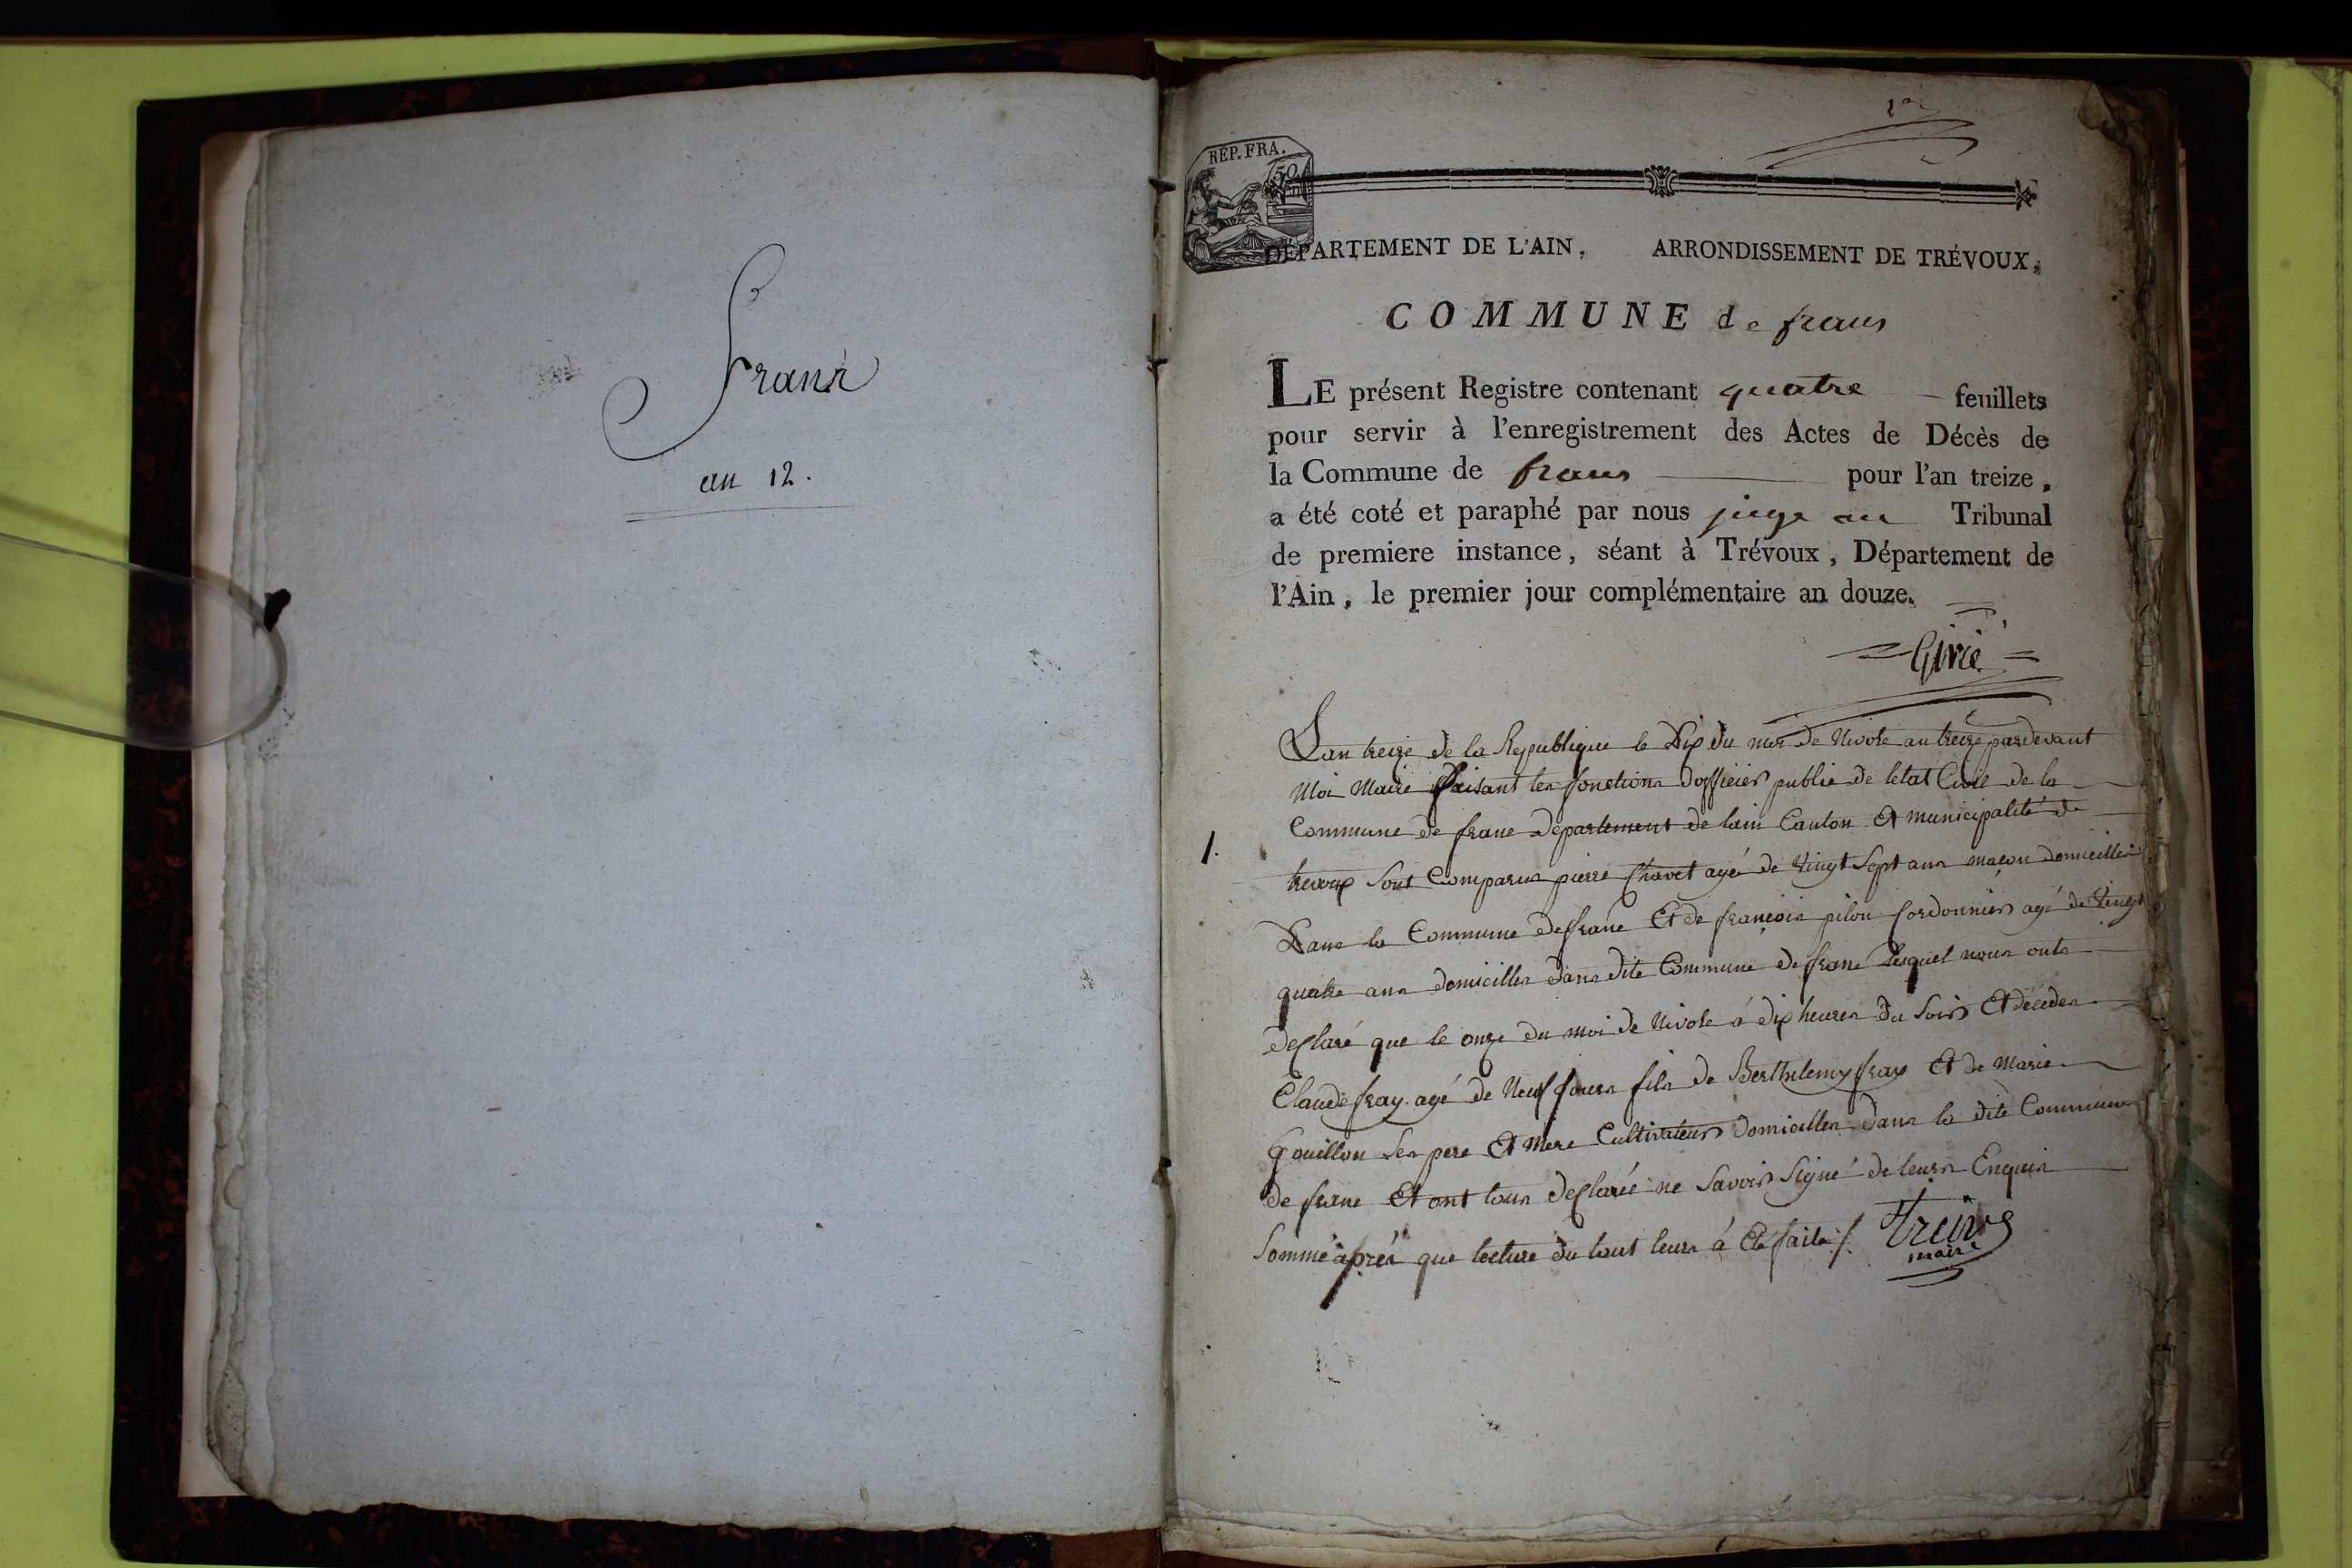 Frans
an 12.
1er
RÉP. FRA.
50
DÉPARTEMENT DE L'AIN, ARRONDISSEMENT DE TRÉVOUX,
COMMUNE de frans
LE présent Registre contenant quatre feuillets
pour servir à l'enregistrement des Actes de Décès de
la Commune de frans pour l'an treize,
a été coté et paraphé par nous juge au Tribunal
de premiere instance, séant à Trévoux, Département de
l'Ain, le premier jour complémentaire an douze.
Lan treize de la Republique le Dix du moi de Nivose an treize pardevant
Moi Maire faisant les fonctions dofficier public de letat Civil de la
1.
Commune de frans departement de lain Canton Et municipalité de
trevoux Sont Comparus pierre Chavet agé de Vingt Sept ans maçon domicillié
Dans la Commune de frans Et de françois pilon Cordonnier agé de Vingt
quatre ans domicilles dans dite Commune de frans Lesquel nous onts
declaré que le onze du moi de Nivose á dix heures du Soir Et décédés
Claude fray agé de Neuf Jours fils de Berthelemy fray Et de Marie
Gouillon Ses pere Et Mere Cultivateurs domicilles dans la dite Commune
de frans Et ont tous declarée ne Savoir Signé de leurs Enquis
Sommé aprés que lecture du tout leurs á Eté faite /.
maire